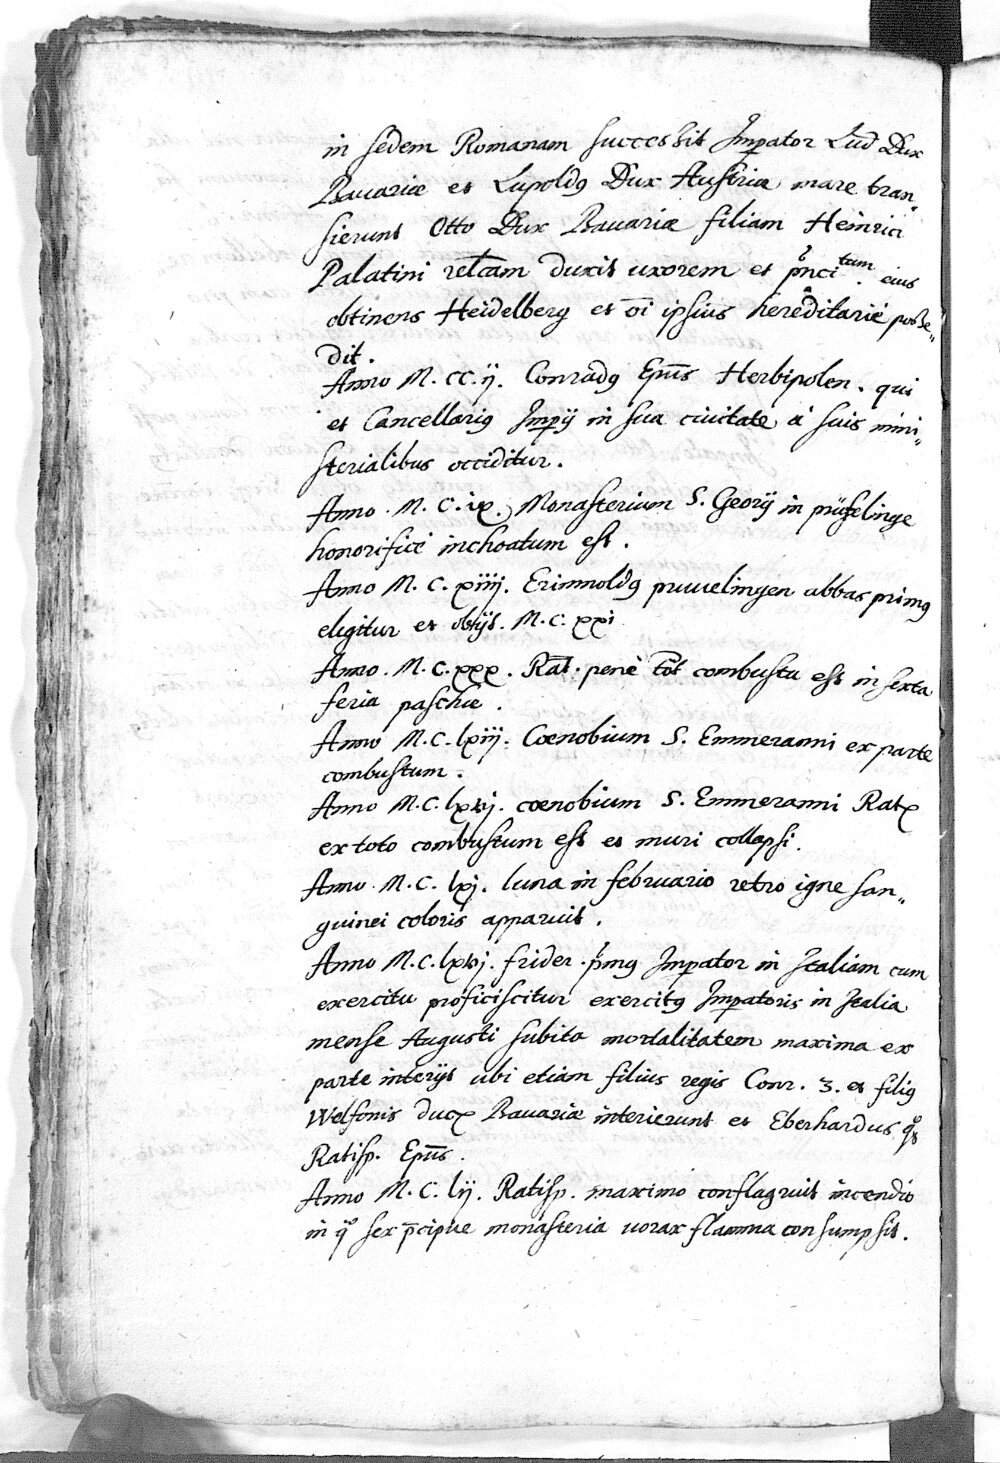 in sedem Romanam successit Imp̱ator Lud Dux
Bauariæ et Lupoldꝯ Dux Austriæ mare tran„
sierunt Otto Dux Bauariæ filiam Heinrici
Palatini relc̄am duxit uxorem et p̊nci.tum eius
obtinens Heidelberg et oī ipsius hereditariè posse„
dit.
Anno M. CC. ij. Conradꝯ Epūs Herbipolen. qui
et Cancellariꝯ Imp̱ij in sua ciuitate à suis mini„
sterialibus occiditur.
Anno. M. C. ix. Monasterium S. Georij in prüfelinge
honorificè inchoatum est.
Anno M. C. xiiij. Erimnoldꝯ pruuelingen abbas primꝯ
eligitur et obijt. M. C. xxi
Anno. M. C. xxx. Rat̄. penè tōt combusta est in sexta
feria paschæ.
Anno M. C. lxiij. Cœnobium S. Emmeranni ex parte
combustum.
Anno M. C. lxvj. cœnobium S. Emmeranni Ratꝝ
ex toto combustum est et muri collapsi.
Anno. M. C. lxj. luna in februario retro igne san„
guinei coloris apparuit.
Anno M. C. lxvj. frider. p̍mꝯ Imp̱ator in Italiam cum
exercitu proficiscitur exercitꝯ Imp̱atoris in Italia
mense Augusti subita mortalitatem maxima ex
parte interijt ubi etiam filius regis Conr. 3. et filiꝯ
Welfonis ducꝭ Bauariæ interierunt et Eberhardus
Ratisp. Epūs.
Anno M. C. lij. Ratisp. maximo conflagruit incendio
in qͦ sex p̄cipue monasteria uorax flamma consumpsit.